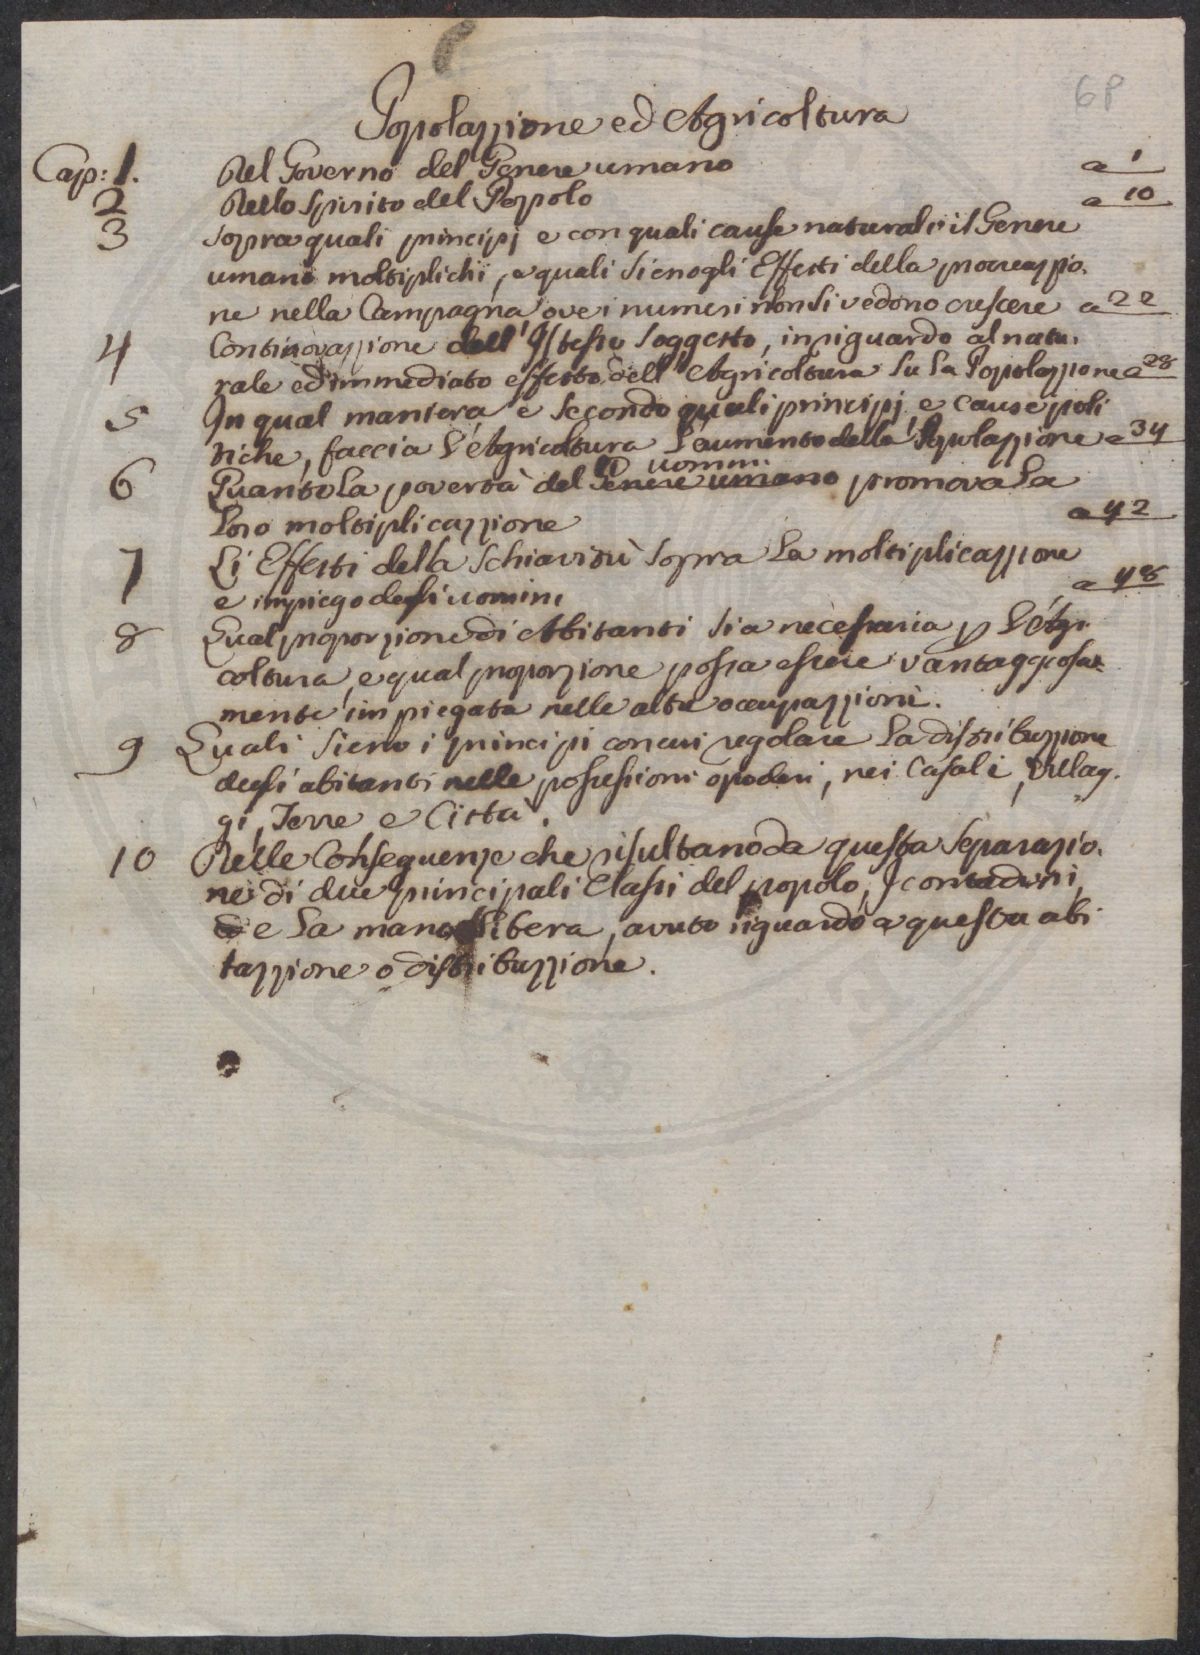 68
Popolazzione ed Agricoltura
Cap: 1. Del Governo del Genere umano a 1
2 Dello Spirito del Popolo a 10
3 Sopra quali principj e con quali cause naturali il Genere
umano moltiplichi, e quali sieno gli Effetti della procreazzio-
ne nella Campagna ove i numeri non si vedono crescere a 22
4 Continovazzione dell'Istesso Soggetto, in riguardo al natu-
rale ed immediato effetto dell'Agricoltura su la Popolazzione a 28
5 In qual maniera e secondo quali principj e cause poli
tiche, faccia l'Agricoltura l'aumento della Popolazzione a 34
6 Quanto la povertà del Genere umano uomini promova la
loro moltiplicazzione a 42
7 Li Effetti della Schiavitù sopra la moltiplicazzione
e impiego degli uomini a 48
8 Qual proporzione di Abitanti sia necessaria p l'Agri-
coltura, e qual proporzione possa essere vantaggiosa-
mente impiegata nelle altre occupazzioni.
9 Quali sieno i principi con cui regolare la distribuzzione
degli abitanti nelle possessioni o poderi, nei Casali, Villag-
gi, Terre e Città.
10 Delle Conseguenze che risultano da questa Separazio-
ne di due principali Classi del popolo, I contadini,
e la mano libera, avuto riguardo a questa abi
tazzione o distribuzzione.